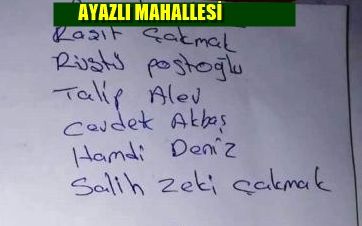 AYAZLI MAHALLESİ
Raşit Çakmak
Rüştü Poştoğlu
Talip Alev
Cevdek Akbaş
Hamdi Deniz
Salih Zeki Çakmak